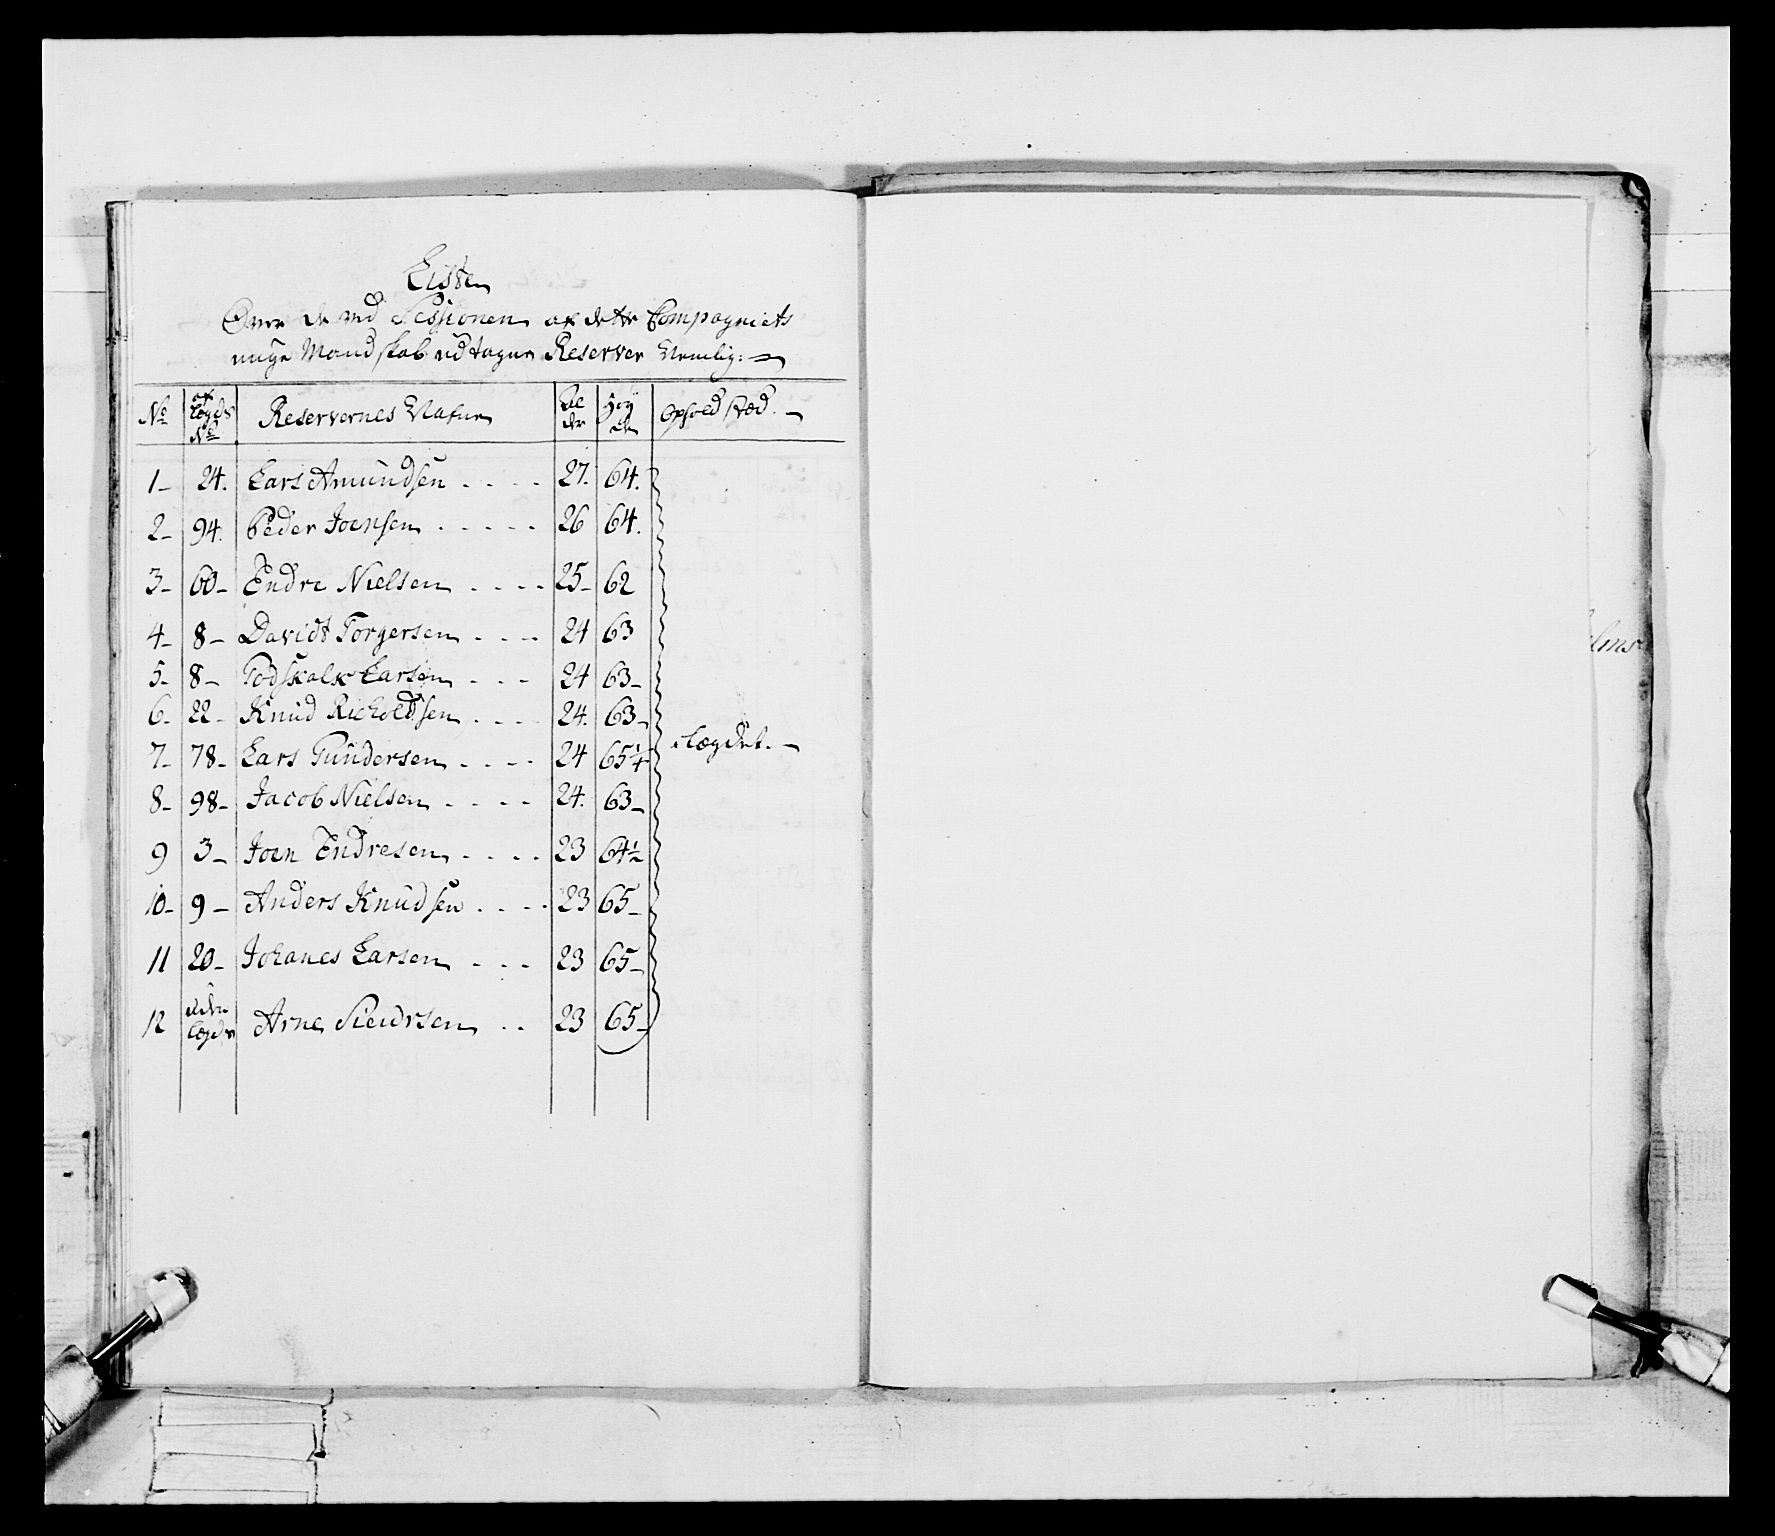 Listen
Over de ved Sessionen af dette Compagniets
unge Mandskab udtagne Reserver Nemlig:
No | af Lægds No | Reservernes Nafne | Alder | Høyde | Ophold stæd.
1 - 24. Lars Amundsen .... 27. 64.
2 - 94. Peder Joensen ..... 26 64.
3 - 60 - Endre Nielsen .... 25 - 62
4 - 8 - Davidt Torgersen .... 24 63
5 - 8 - Godskalk Larsen ... 24 63 -
6 - 22 - Knud Richoldsen .... 24. 63 -
7 - 78 - Lars Gundersen .... 24 65 1/4
i Lægdet. -
8 - 98 - Jacob Nielsen .... 24. 63 -
9 3 - Joen Endresen .... 23 64 1/2
10 - 9 - Anders Knudsen .... 23 65 -
11 20 - Johanes Larsen ... 23 65 -
12 uden Lægds Arne Siursen .. 23 65 -